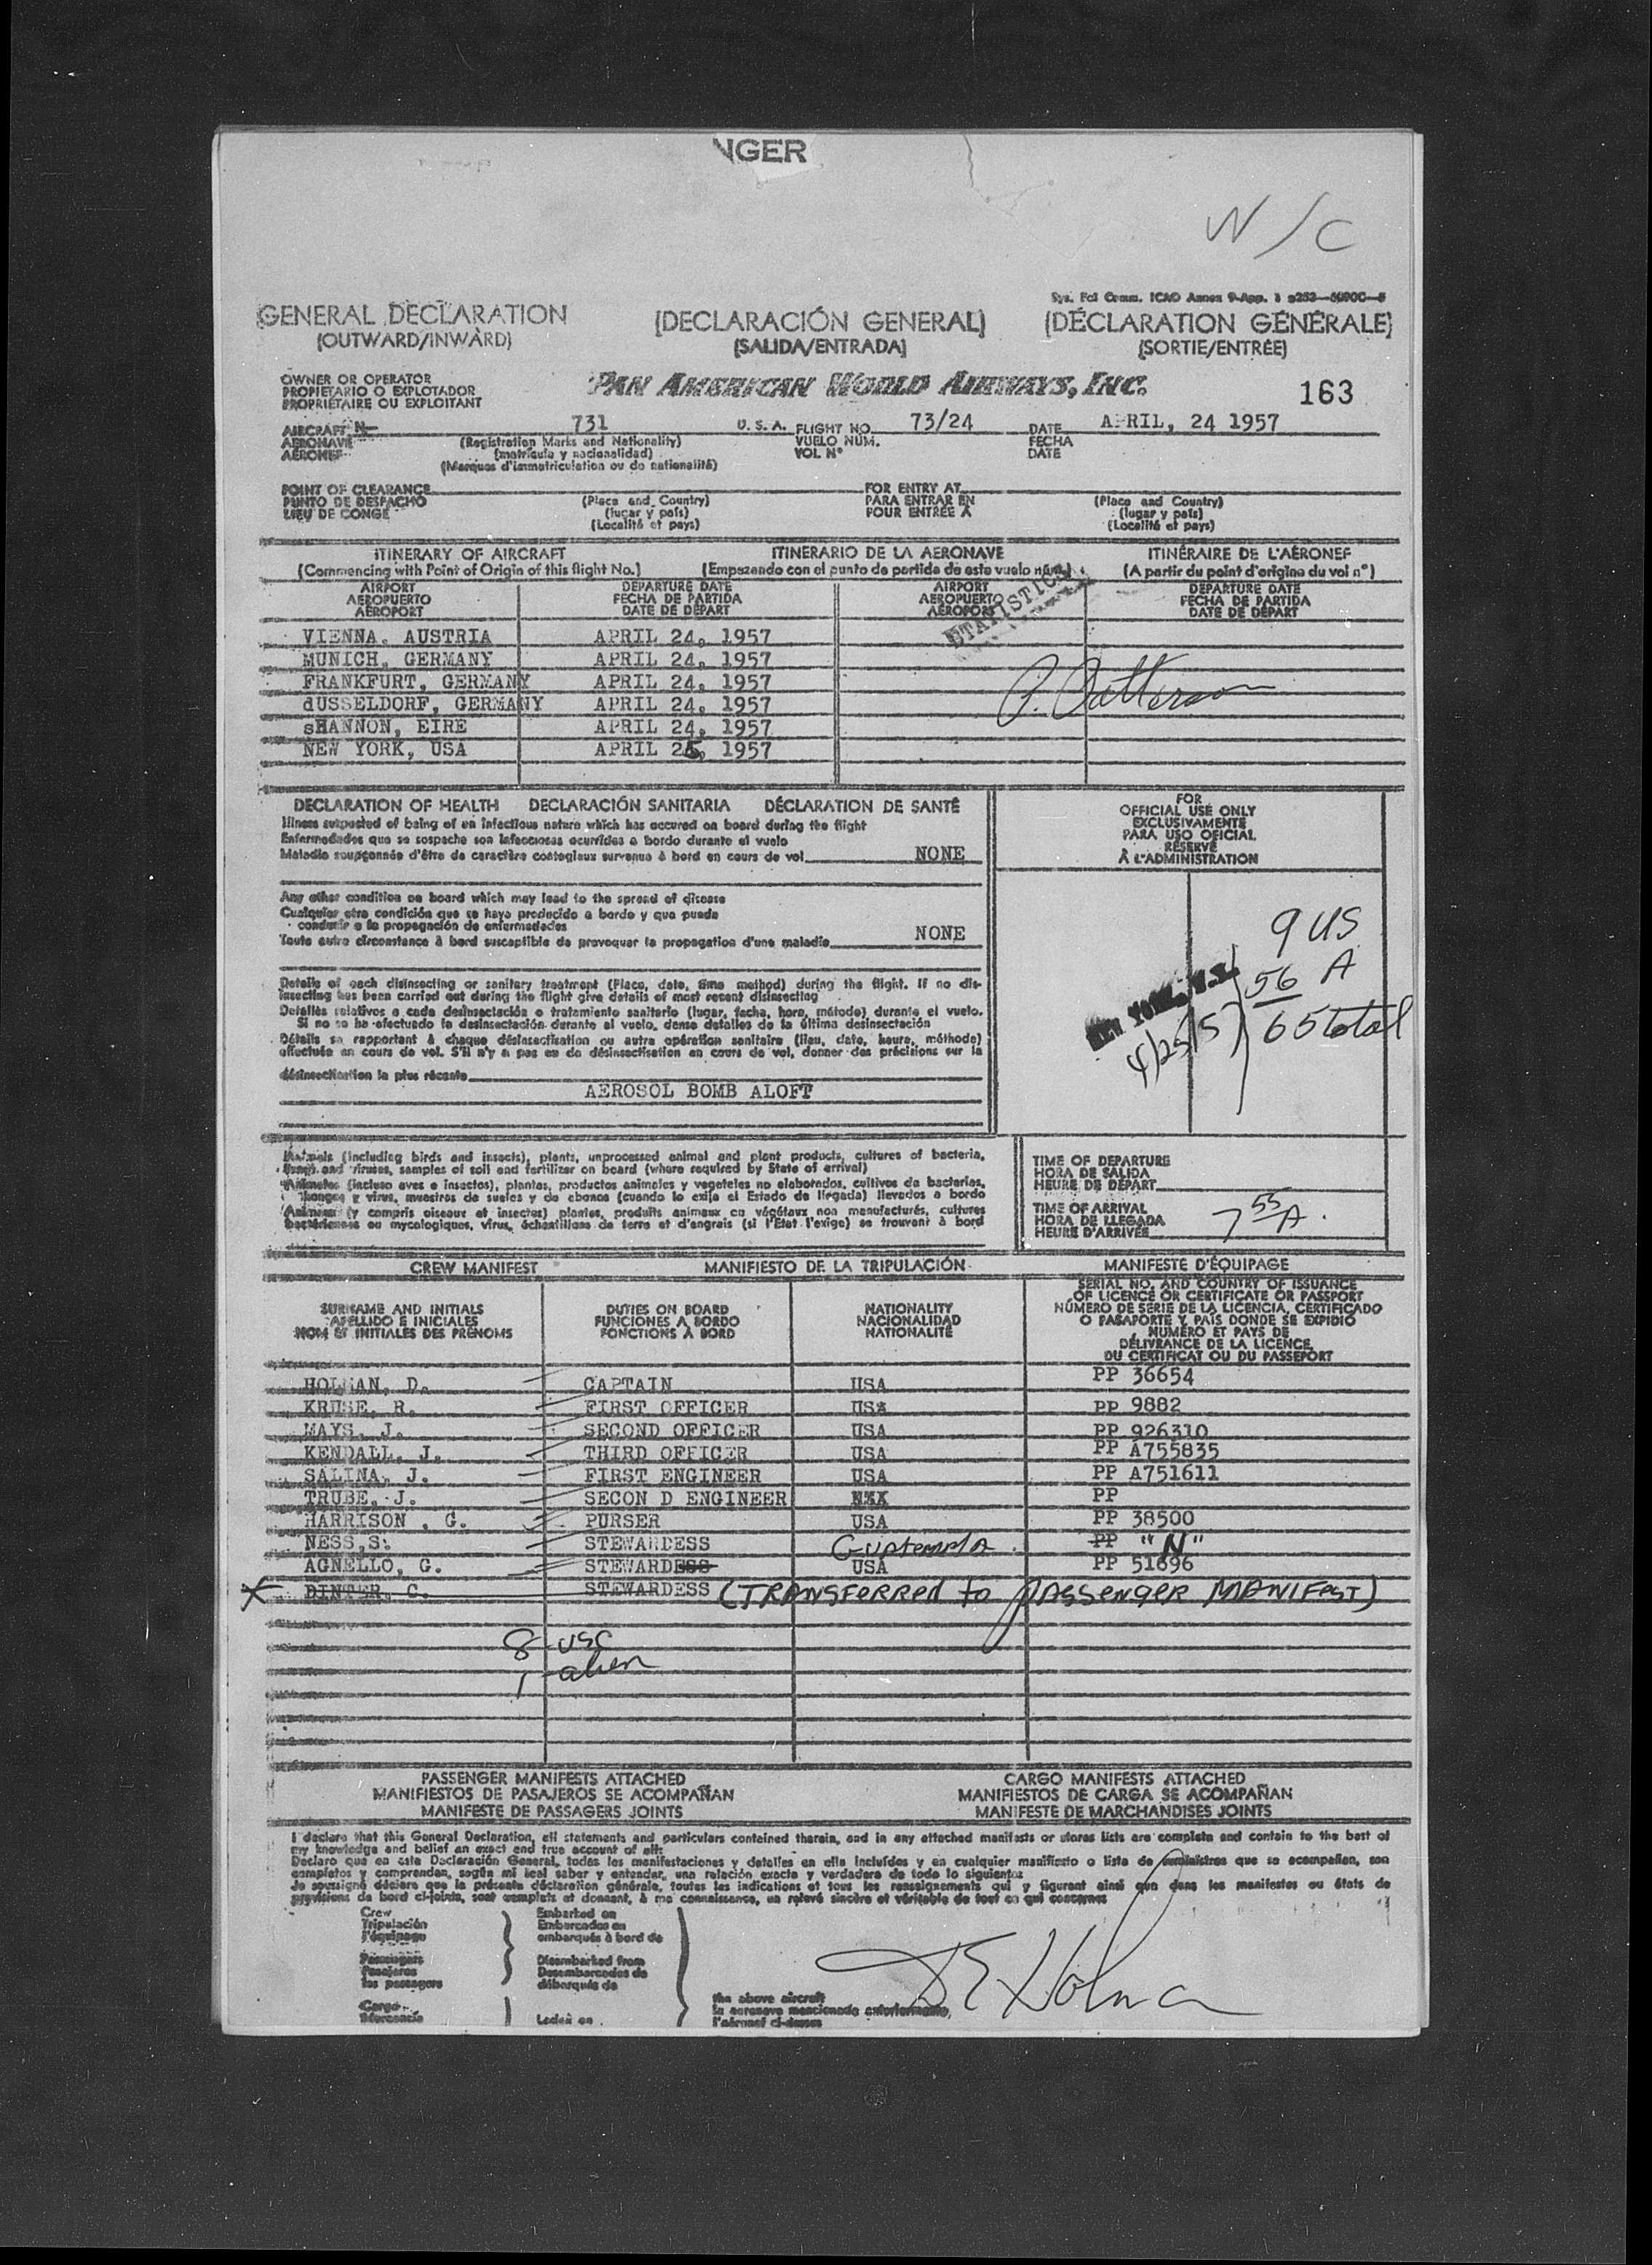 NGER
N/C
Sys. Fcl Comm. ICAO Annex 9-App. 1
GENERAL DECLARATION (DECLARACIÓN GENERAL) (DÉCLARATION GÉNÉRALE)
(OUTWARD/INWARD) (SALIDA/ENTRADA) (SORTIE/ENTRÉE)
OWNER OR OPERATOR
PROPIETARIO O EXPLOTADOR
PROPRIÉTAIRE OU EXPLOITANT
PAN AMERICAN WORLD AIRWAYS, INC. 163
AIRCRAFT N- 731 U.S.A. FLIGHT NO. 73/24 DATE APRIL, 24 1957
AERONAVE (Registration Marks and Nationality) VUELO NUM. FECHA
AÉRONEF (matrícula y nacionalidad) VOL Nº DATE
(Marques d'immatriculation ou de nationalité)
POINT OF CLEARANCE FOR ENTRY AT
PUNTO DE DESPACHO (Place and Country) PARA ENTRAR EN (Place and Country)
LIEU DE CONGÉ (lugar y país) POUR ENTRÉE À (lugar y país)
(Localité et pays) (Localité et pays)
ITINERARY OF AIRCRAFT ITINERARIO DE LA AERONAVE ITINÉRAIRE DE L'AÉRONEF
(Commencing with Point of Origin of this flight No.) (Empezando con el punto de partida de este vuelo núm.) (A partir du point d'origine du vol nº)
AIRPORT DEPARTURE DATE AIRPORT DEPARTURE DATE
AEROPUERTO FECHA DE PARTIDA AEROPUERTO FECHA DE PARTIDA
AÉROPORT DATE DE DÉPART AÉROPORT DATE DE DÉPART
STATISTICAL
VIENNA, AUSTRIA APRIL 24, 1957
MUNICH, GERMANY APRIL 24, 1957
FRANKFURT, GERMANY APRIL 24, 1957
P. Patterson
dUSSELDORF, GERMANY APRIL 24, 1957
sHANNON, EIRE APRIL 24, 1957
NEW YORK, USA APRIL 25, 1957
DECLARATION OF HEALTH DECLARACIÓN SANITARIA DÉCLARATION DE SANTÉ
Illness suspected of being of an infectious nature which has occured on board during the flight
Enfermedades que se sospecha son infecciosas ocurridas a bordo durante el vuelo
Maladie soupçonnée d'être de caractère contagieux survenue à bord en cours de vol NONE
FOR
OFFICIAL USE ONLY
EXCLUSIVAMENTE
PARA USO OFICIAL
RÉSERVÉ
À L'ADMINISTRATION
Any other condition on board which may lead to the spread of disease
Cualquier otra condición que se haya producido a bordo y que pueda
conducir a la propagación de enfermedades
Toute autre circonstance à bord susceptible de provoquer la propagation d'une maladie NONE
9 US
56 A
65 total
NEW YORK, N.Y.
4/25/57
Details of each disinsecting or sanitary treatment (Place, date, time method) during the flight. If no dis-
insecting has been carried out during the flight give details of most recent disinsecting
Detalles relativos a cada desinsectación o tratamiento sanitario (lugar, fecha, hora, método) durante el vuelo.
Si no se ha efectuado la desinsectación durante el vuelo, dense detalles de la última desinsectación
Détails se rapportant à chaque désinsectisation ou autre opération sanitaire (lieu, date, heure, méthode)
effectuée en cours de vol. S'il n'y a pas eu de désinsectisation en cours de vol, donner des précisions sur la
désinsectisation la plus récente
AEROSOL BOMB ALOFT
Animals (including birds and insects), plants, unprocessed animal and plant products, cultures of bacteria,
fungi and viruses, samples of soil and fertilizer on board (where required by State of arrival)
Animales (incluso aves e insectos), plantas, productos animales y vegetales no elaborados, cultivos de bacterias,
hongos y virus, muestras de suelos y de abonos (cuando lo exija el Estado de llegada) llevados a bordo
Animaux (y compris oiseaux et insectes) plantes, produits animaux ou végétaux non manufacturés, cultures
bactériennes ou mycologiques, virus, échantillons de terre et d'engrais (si l'Etat l'exige) se trouvant à bord
TIME OF DEPARTURE
HORA DE SALIDA
HEURE DE DÉPART
TIME OF ARRIVAL
HORA DE LLEGADA 7 55 A.
HEURE D'ARRIVÉE
CREW MANIFEST MANIFIESTO DE LA TRIPULACIÓN MANIFESTE D'ÉQUIPAGE
SURNAME AND INITIALS DUTIES ON BOARD NATIONALITY
APELLIDO E INICIALES FUNCIONES A BORDO NACIONALIDAD
NOM ET INITIALES DES PRÉNOMS FONCTIONS À BORD NATIONALITÉ
SERIAL NO. AND COUNTRY OF ISSUANCE
OF LICENCE OR CERTIFICATE OR PASSPORT
NÚMERO DE SERIE DE LA LICENCIA, CERTIFICADO
O PASAPORTE Y PAÍS DONDE SE EXPIDIÓ
NUMÉRO ET PAYS DE
DÉLIVRANCE DE LA LICENCE,
DU CERTIFICAT OU DU PASSEPORT
HOLMAN, D. CAPTAIN USA PP 36654
KRUSE, R. FIRST OFFICER USA PP 9882
MAYS, J. SECOND OFFICER USA PP 926310
KENDALL, J. THIRD OFFICER USA PP A755835
SALINA, J. FIRST ENGINEER USA PP A751611
TRUBE, J. SECON D ENGINEER PP
HARRISON , G. PURSER USA PP 38500
NESS,S. STEWARDESS Guatemala. PP "N"
AGNELLO, G. STEWARDESS USA PP 51696
X BINTER, C. STEWARDESS (TRANSFERRED to PASSENGER MANIFEST)
8 USC
1 alien
PASSENGER MANIFESTS ATTACHED CARGO MANIFESTS ATTACHED
MANIFIESTOS DE PASAJEROS SE ACOMPAÑAN MANIFIESTOS DE CARGA SE ACOMPAÑAN
MANIFESTE DE PASSAGERS JOINTS MANIFESTE DE MARCHANDISES JOINTS
I declare that this General Declaration, all statements and particulars contained therein, and in any attached manifests or stores lists are complete and contain to the best of
my knowledge and belief an exact and true account of all:
Declaro que en esta Declaración General, todas las manifestaciones y detalles en ella incluídos y en cualquier manifiesto o lista de suministros que se acompañen, son
completos y comprenden, según mi leal saber y entender, una relación exacta y verdadera de todo lo siguiente:
Je soussigné déclare que la présente déclaration générale, toutes les indications et tous les renseignements qui y figurent ainsi que dans les manifestes ou états de
provisions de bord ci-joints, sont complets et donnent, à ma connaissance, un relevé sincère et véritable de tout ce qui concerne:
Crew Embarked on
Tripulación Embarcados en
l'équipage embarqués à bord de
Passengers Disembarked from
Pasajeros Desembarcados de
les passagers débarqués de
D E Holman
Cargo the above aircraft
la aeronave mencionada anteriormente,
Mercancía Loaded on l'aéronef ci-dessus